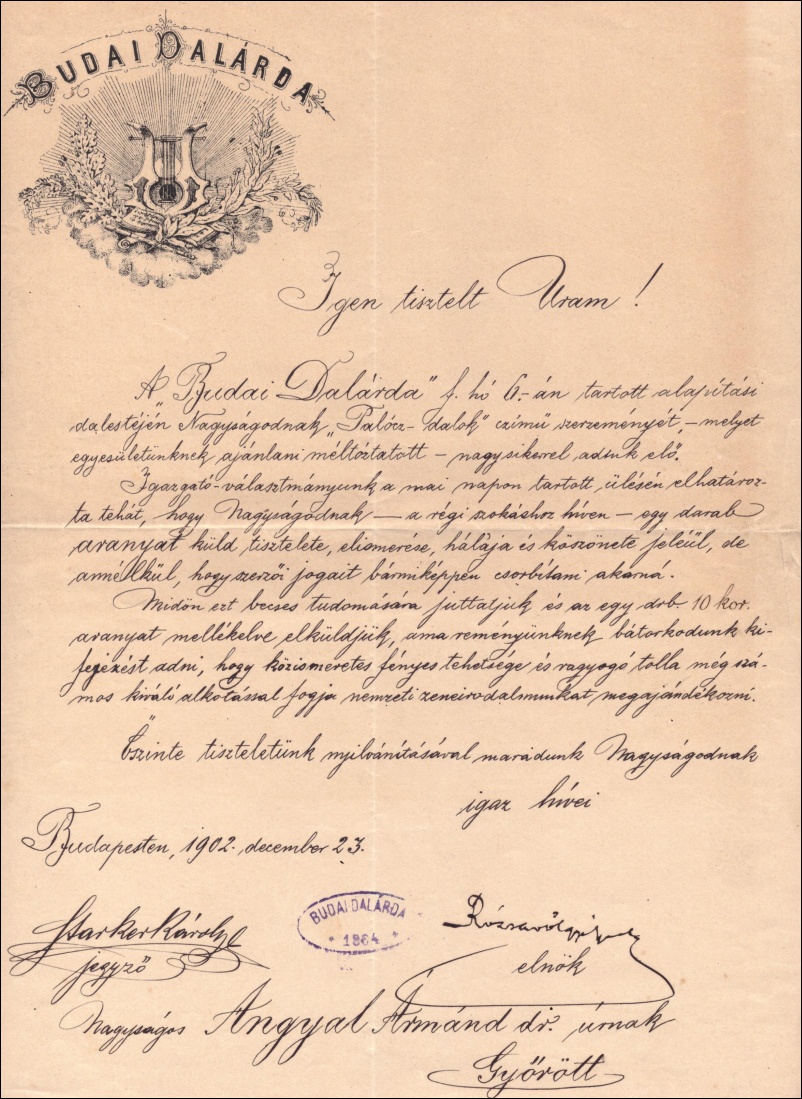 BUDAI DALÁRDA
Igen tisztelt Uram!
A „Budai Dalárda" f. hó 6.-án tartott alapítási
dalestéjén Nagyságodnak „Palócz-dalok" czímű szerzeményét, – melyet
egyesületünknek ajánlani méltóztatott – nagy sikerrel adtuk elő.
Igazgató-választmányunk a mai napon tartott ülésén elhatároz-
ta tehát, hogy Nagyságodnak – a régi szokáshoz híven – egy darab
aranyat küld tisztelete, elismerése, hálája és köszönete jeléül, de
annélkül, hogy szerzői jogait bármiképpen csorbítani akarná.
Midőn ezt becses tudomására juttatjuk és az egy drb. 10 kor.
aranyat mellékelve elküldjük, ama reményünknek bátorkodunk ki-
fejezést adni, hogy közismeretes fényes tehetsége és ragyogó tolla még szá-
mos kiváló alkotással fogja nemzeti zeneirodalmunkat megajándékozni.
Őszinte tiszteletünk nyilvánításával maradunk Nagyságodnak
igaz hívei
Budapesten, 1902. december 23.
BUDAI DALÁRDA
* 1864 *
Starker Károly
jegyző
Rózsavölgyi
elnök
Nagyságos Angyal Ármánd dr. úrnak
Győrött